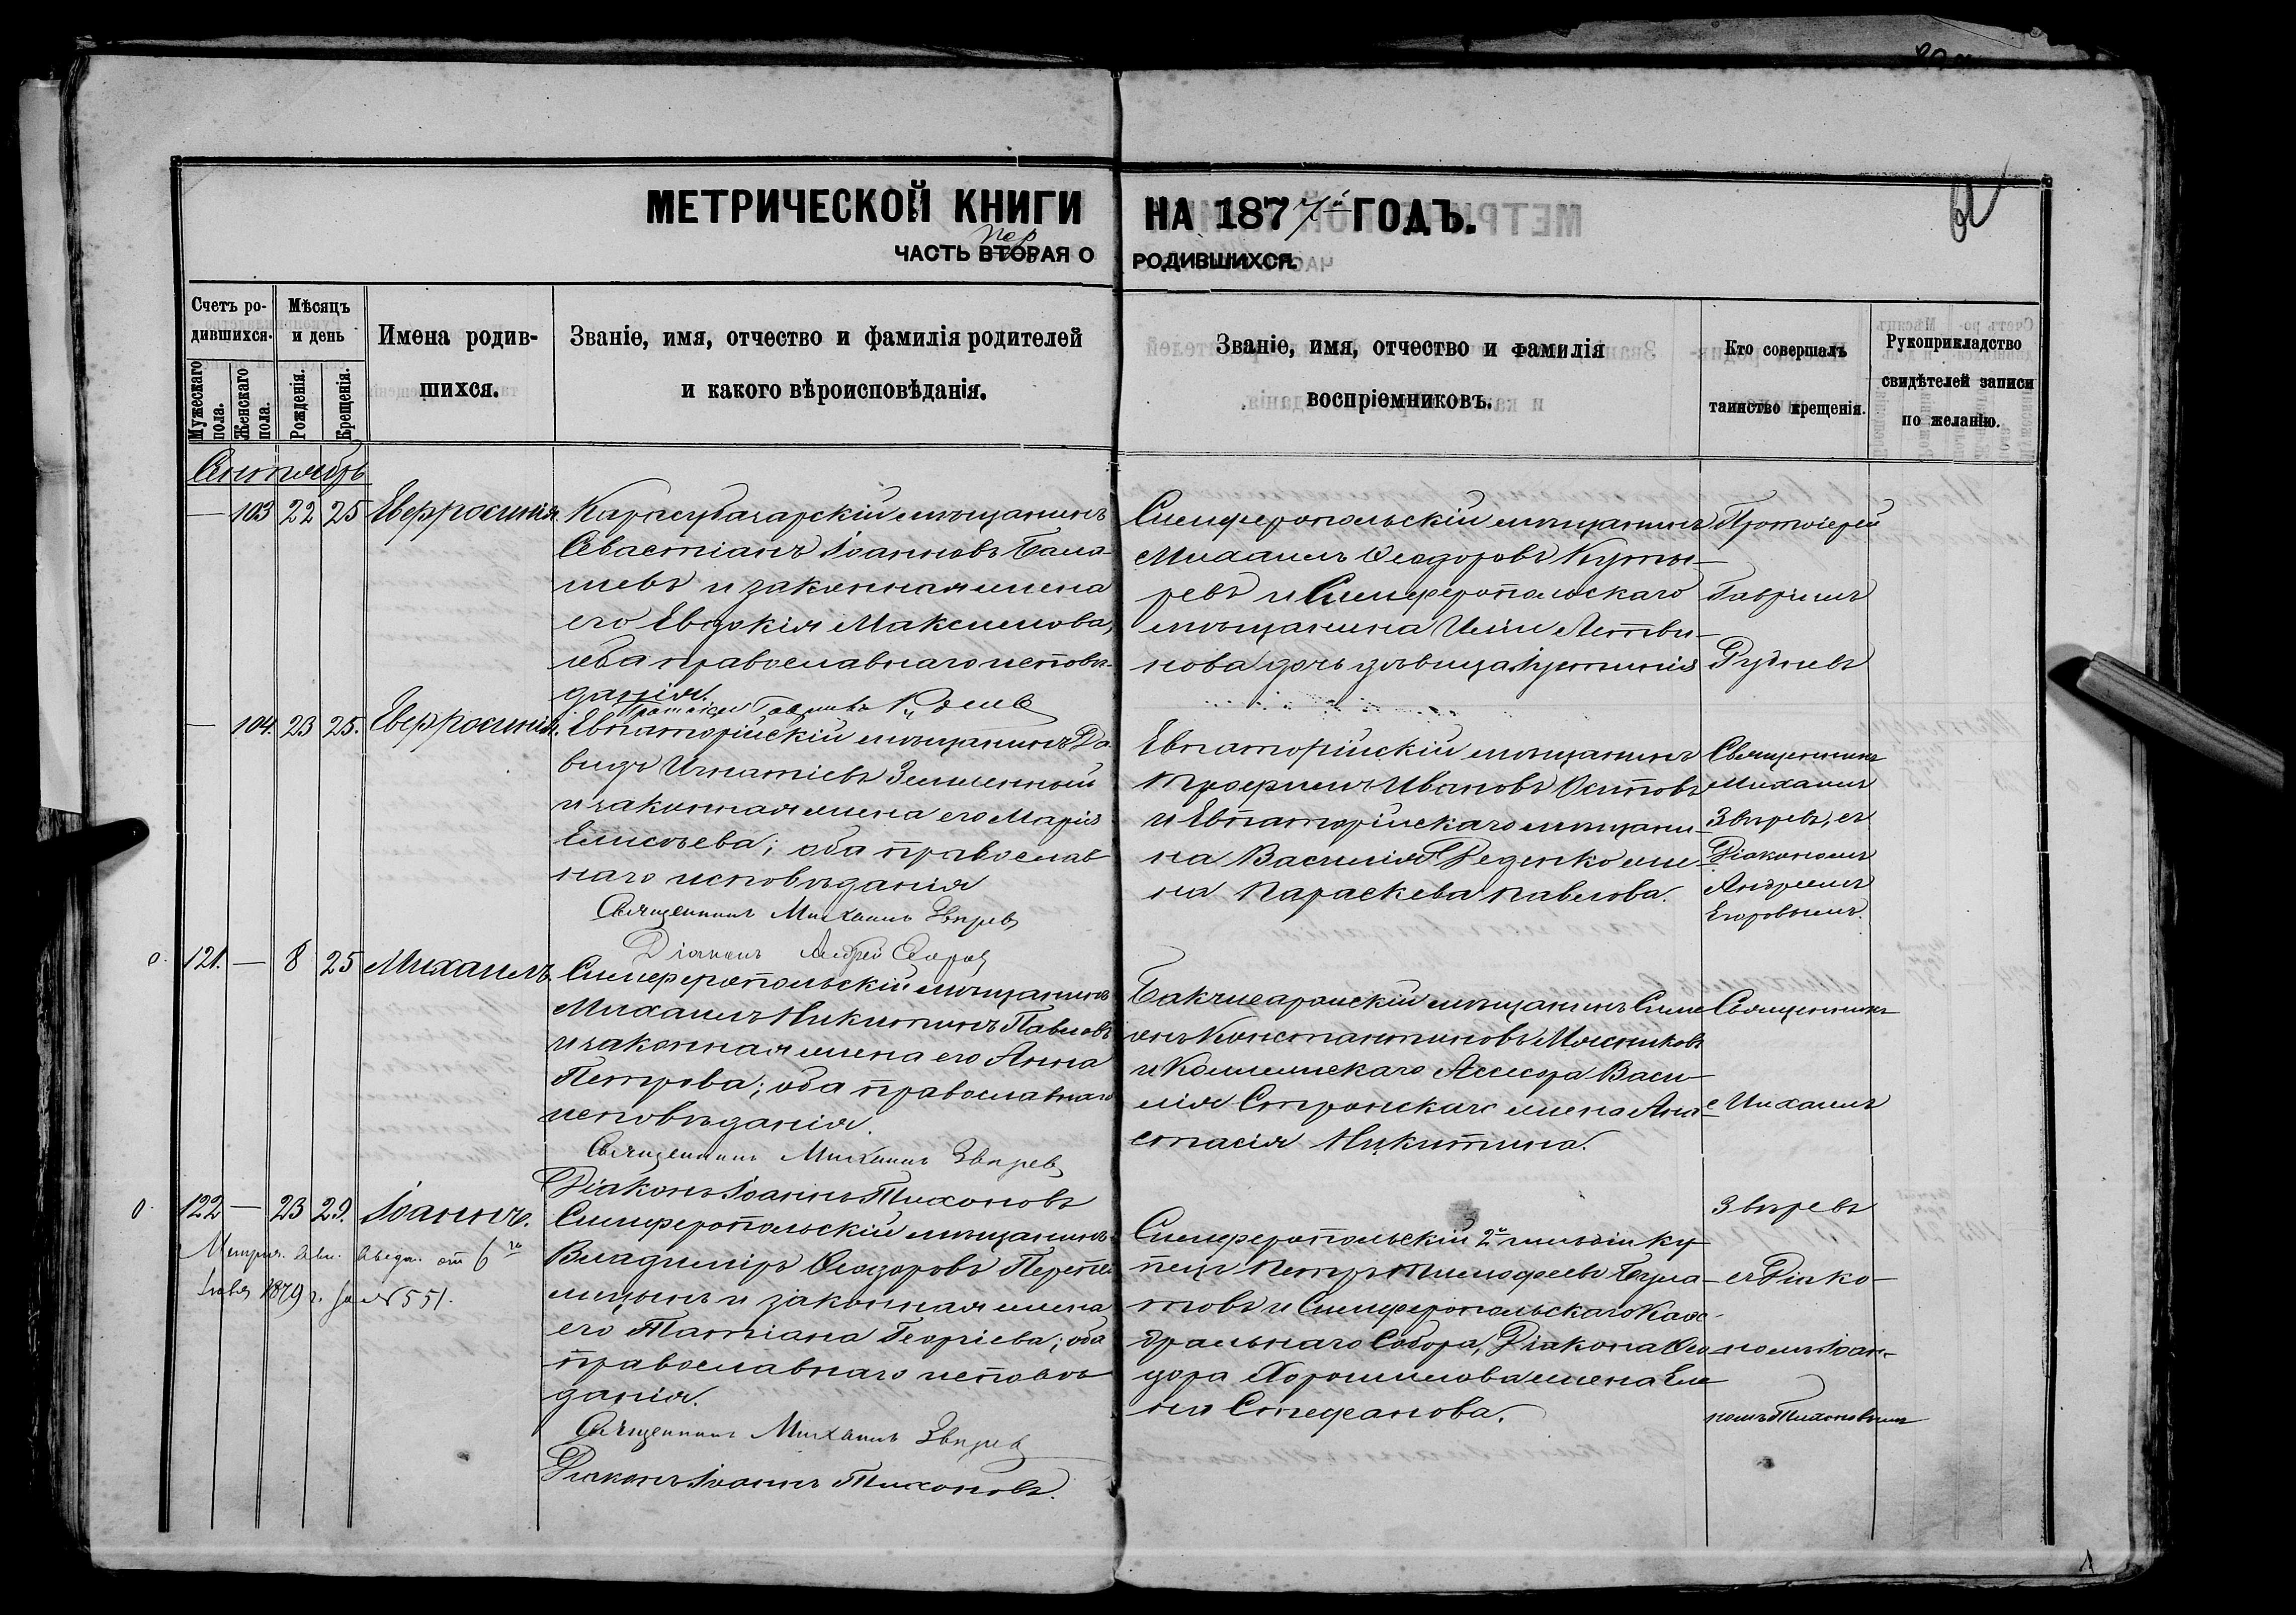 МЕТРИЧЕСКОЙ КНИГИ НА 1877й ГОДЪ.
пер
ЧАСТЬ ВТОРАЯ О РОДИВШИХСЯ.
Счетъ ро-
дившихся.
Мужескаго пола.
Женскаго пола.
Мѣсяцъ
и день
Рожденія.
Крещенія.
Имена родив-
шихся.
Званіе, имя, отчество и фамилія родителей
и какого вѣроисповѣданія.
Званіе, имя, отчество и фамилія
воспріемниковъ.
Кто совершалъ
таинство крещенія.
Рукоприкладство
свидѣтелей записи
по желанію.
Сентябрь
— 103 22 25 Евфросинія
Карасубазарскій мѣщанинъ
Севастіанъ Іоанновъ Бала-
шевъ и законная жена
его Евдокія Максимова,
оба православнаго исповѣ-
данія.
Протоіерей Гавріилъ Рудневъ
Симферопольскій мѣщанинъ
Михаилъ Ѳеодоровъ Куты-
ревъ и Симферопольскаго
мѣщанина Иліи Литви-
нова дочь дѣвица Іустинія
Протоіерей
Гавріилъ
Рудневъ
— 104. 23 25. Евфросинія.
Евпаторійскій мѣщанинъ Да-
видъ Игнатіевъ Земленный
и законная жена его Марія
Елисѣева; оба православ-
наго исповѣданія
Священникъ Михаилъ Звѣревъ
Діаконъ Андрей Егоровъ
Евпаторійскій мѣщанинъ
Трофимъ Ивановъ Осиповъ
и Евпаторійскаго мѣщани-
на Василія Феденко же-
на Параскева Павлова.
Священникъ
Михаилъ
Звѣревъ, съ
Діакономъ
Андреемъ
Егоровымъ.
121. — 8 25 Михаилъ
Симферопольскій мѣщанинъ
Михаилъ Никитинъ Павловъ
и законная жена его Анна
Петрова; оба православнаго
исповѣданія.
Священникъ Михаилъ Звѣревъ
Діаконъ Іоаннъ Тихоновъ
Бахчисарайскій мѣщанинъ Симе-
онъ Константиновъ Мясниковъ
и Коллежскаго Ассесора Васи-
лія Стронскаго жена Ана-
стасія Никитина.
Священникъ
Михаилъ
Звѣревъ
122 — 23 29. Іоаннъ.
Метрич. свид. выдан. от 6го
1879 г. за № 551.
Симферопольскій мѣщанинъ
Владиміръ Ѳеодоровъ Перепе-
лицынъ и законная жена
его Татіана Георгіева; оба
православнаго исповѣ-
данія.
Священникъ Михаилъ Звѣревъ
Діаконъ Іоаннъ Тихоновъ.
Симферопольскій 2й гильдіи ку-
пецъ Петръ Тимофеевъ Була-
товъ и Симферопольскаго Каѳе-
дральнаго Собора, Діакона Ѳео-
дора Хорошилова жена Еле-
на Стефанова.
съ Діако-
номъ Іоан-
номъ Тихоновымъ